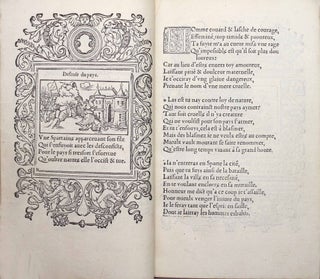 Defense du pays.
Vne Spartaine apperceuant son filz
Qui s'enfuyoit auec les desconfitz,
Pour le pays sentelant
Qu'oultre nature elle l'occist & tue.
Comme couard & lasche de courage,
Effeminé, trop timide & paoureux,
Ta fuyte m'a au cueur mis vne rage
Qu'impossible est qu'il soit plus dou
loureux:
Car au lieu d'estre enuers toy amoureux,
Laissant pitié & doulceur maternelle,
Ie t'occiray d'vng glaiue dangereux,
Prenant le nom d'vne mere cruelle.
Las est tu nay contre loy de nature,
Qui nous contrainct nostre pays aymer?
Tant soit cruelle d'sa creature
Qui ne voulsist pour son pays s'armer?
Et tu t'enfouys, cela est à blasmer,
Mais des fuitifz il ne veulx estre au compte,
Mieulx vault mourir se faire renommer,
Qu'estre long temps viuant à sa grand honte.
Ia n'entreras en Sparte la cité,
Puis que tu fuys ainsi de la bataille,
Laissant la villa en sa necessité,
En te voulant enclorre en sa muraille.
Honneur me dit qu'à ce coup ie t'assaille,
Pour mieulx venger l'iniure du pays,
Ie te feray tant que l'esprit en faille,
Dont ie lairray les humains esbahis.